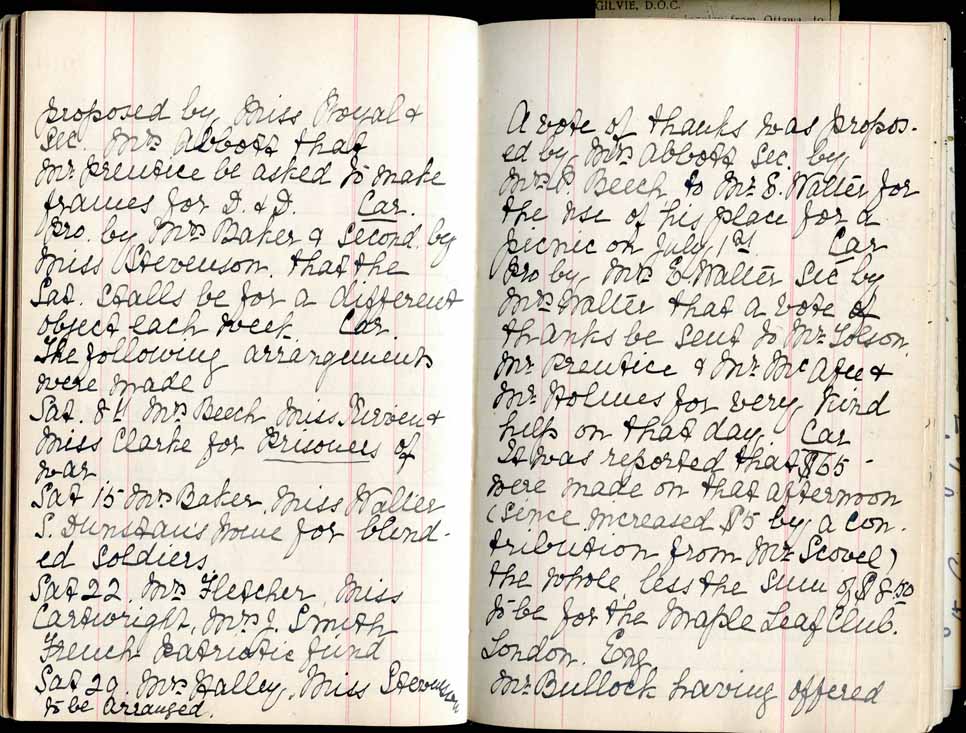 GILVIE, D.O.C.
from Ottawa, to
proposed by Miss Royal &
Sec. Mrs Abbott that
Mr Prentice be asked to make
frames for D. & D. Car.
Pro. by Mrs Baker & Second. by
Miss Stevenson. that the
Sat. Stalls be for a different
object each week. Car
The following arrangements
were made
Sat. 8th Mrs Beech, Miss &
Miss Clarke for Prisoners of
war
Sat 15 Mrs Baker, Miss Walter
S. Dunstan's home for blind-
ed soldiers.
Sat 22. Mrs Fletcher, Miss
Cartwright, Mrs J. Smith
French Patriotic fund
Sat 29. Mrs Halley, Miss Stevenson
to be arranged.
A vote of thanks was propos-
ed by Mrs Abbott Sec. by
Mrs P. Beech to Mr E. Walter for
the use of his place for a
picnic on July 1st Car
Pro by Mrs E. Walter Sec by
Mrs Walter that a vote of
thanks be sent to Mr Tolson,
Mr Prentice & Mr McAfee &
Mr Holmes for very kind
help on that day. Car
It was reported that $65-
were made on that afternoon
(since increased $5 by a con-
tribution from Mr Scovel)
the whole less the sum of $8.50
to be for the Maple Leaf Club.
London. Eng.
Mr Bullock having offered